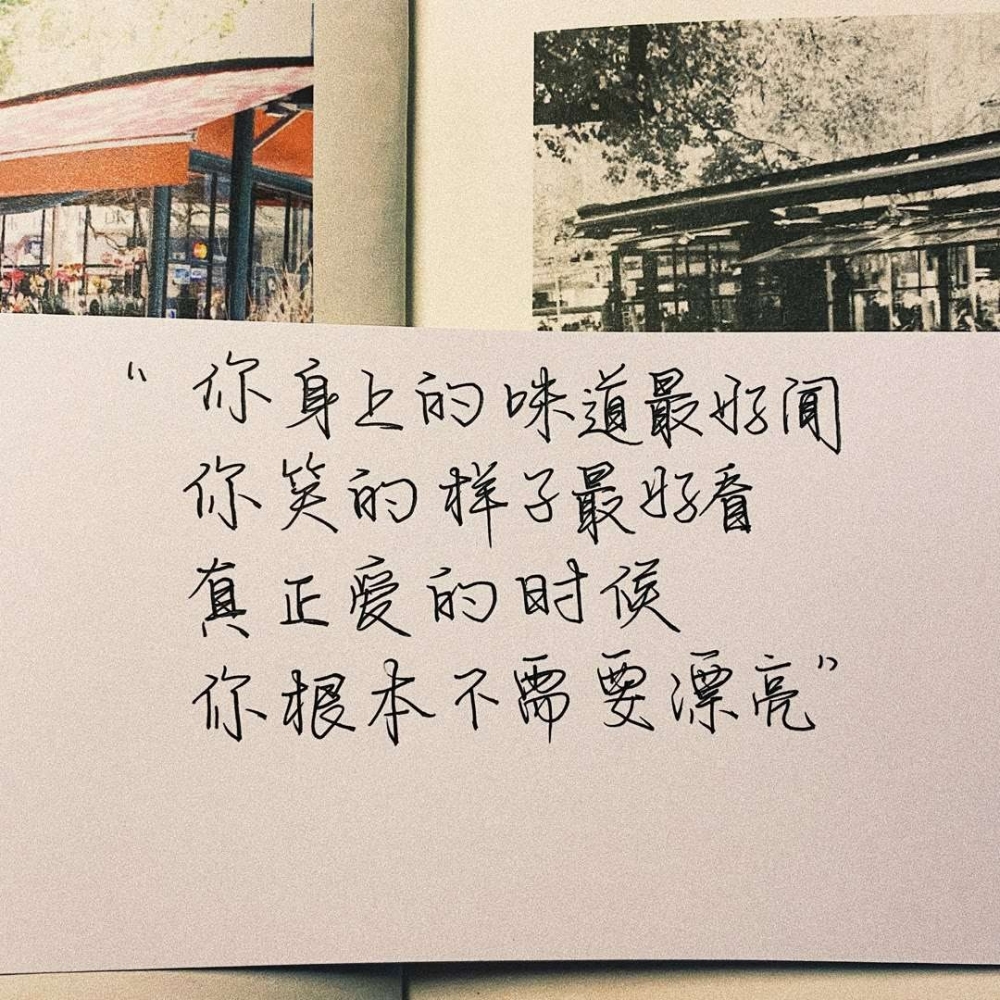 “你身上的味道最好闻
你笑的样子最好看
真正爱的时候
你根本不需要漂亮”